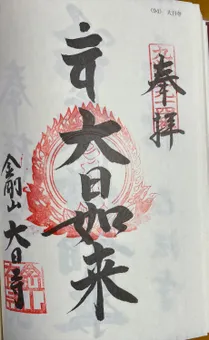 奉拝
大日如来
金剛山 大日寺